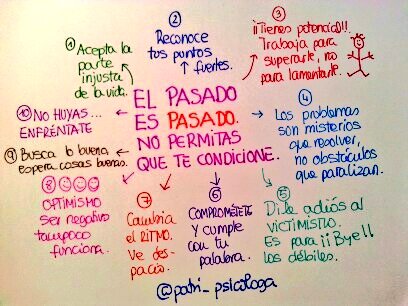 EL PASADO
ES PASADO.
NO PERMITAS
QUE TE CONDICIONE.
① Acepta la
parte
injusta
de la vida.
② Reconoce
tus puntos
fuertes.
③ ¡¡Tienes potencial!!
Trabaja para
superarte, no
para lamentarte.
④ Los problemas
son misterios
que resolver,
no obstáculos
que paralizan.
⑤ Dile adiós al
VICTIMISMO.
Es para ¡¡Bye!!
los débiles.
⑥ COMPROMÉTETE
Y cumple
con tu
palabra.
⑦ Cambia
el RITMO.
Ve des-
pacio.
⑧ OPTIMISMO
ser negativo
tampoco
funciona.
⑨ Busca lo bueno,
espera cosas buenas.
⑩ NO HUYAS...
ENFRÉNTATE
@patri_psicóloga